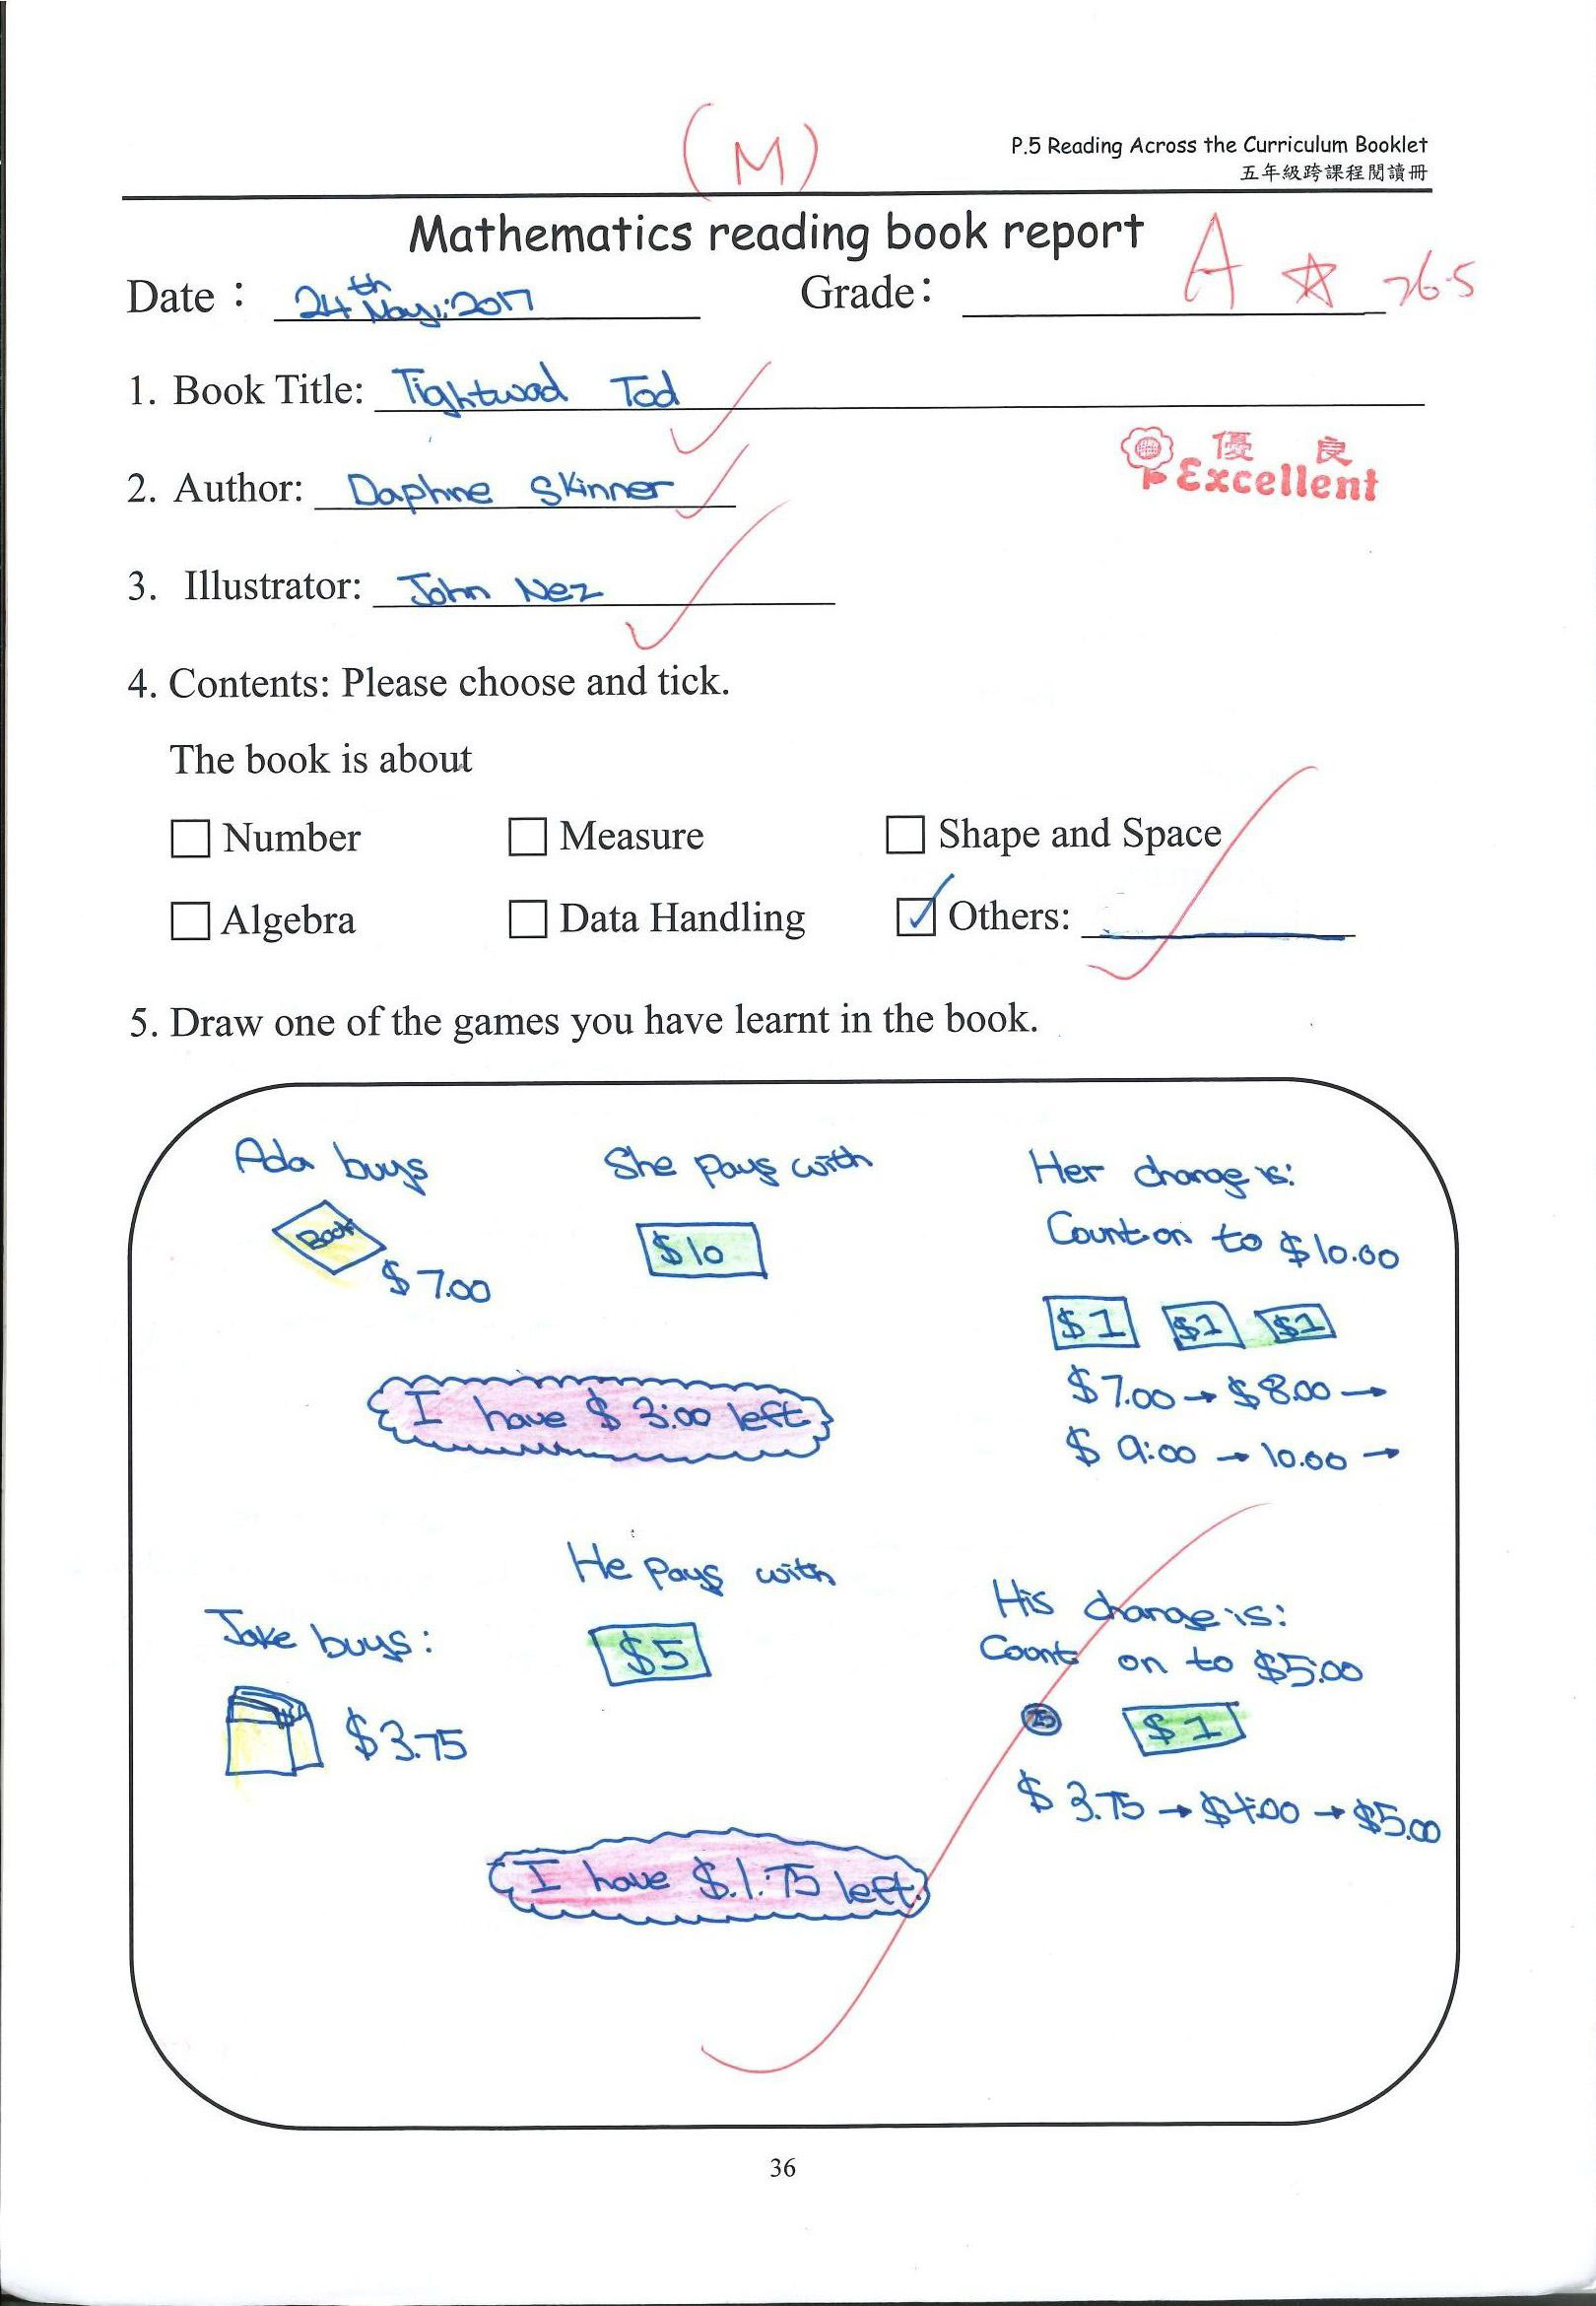 (M)
P.5 Reading Across the Curriculum Booklet
五年級跨課程閱讀冊
Mathematics reading book report
Date : 24th May: 2017 Grade: A ☆ 26.5
1. Book Title: Tightwad Tod
優良
Excellent
2. Author: Daphne Skinner
3. Illustrator: John Nez
4. Contents: Please choose and tick.
The book is about
☐ Number ☐ Measure ☐ Shape and Space
☐ Algebra ☐ Data Handling ☑ Others:
5. Draw one of the games you have learnt in the book.
Ada buys She pays with Her change is:
Book $10 Count on to $10.00
$7.00
$1 $1 $1
$7.00 → $8.00 →
I have $3:00 left
$9:00 → 10.00 →
He pays with
Jake buys: $5 His change is:
Count on to $5:00
$3.75 $1
$3.75 → $4:00 → $5.00
I have $.1:75 left.
36